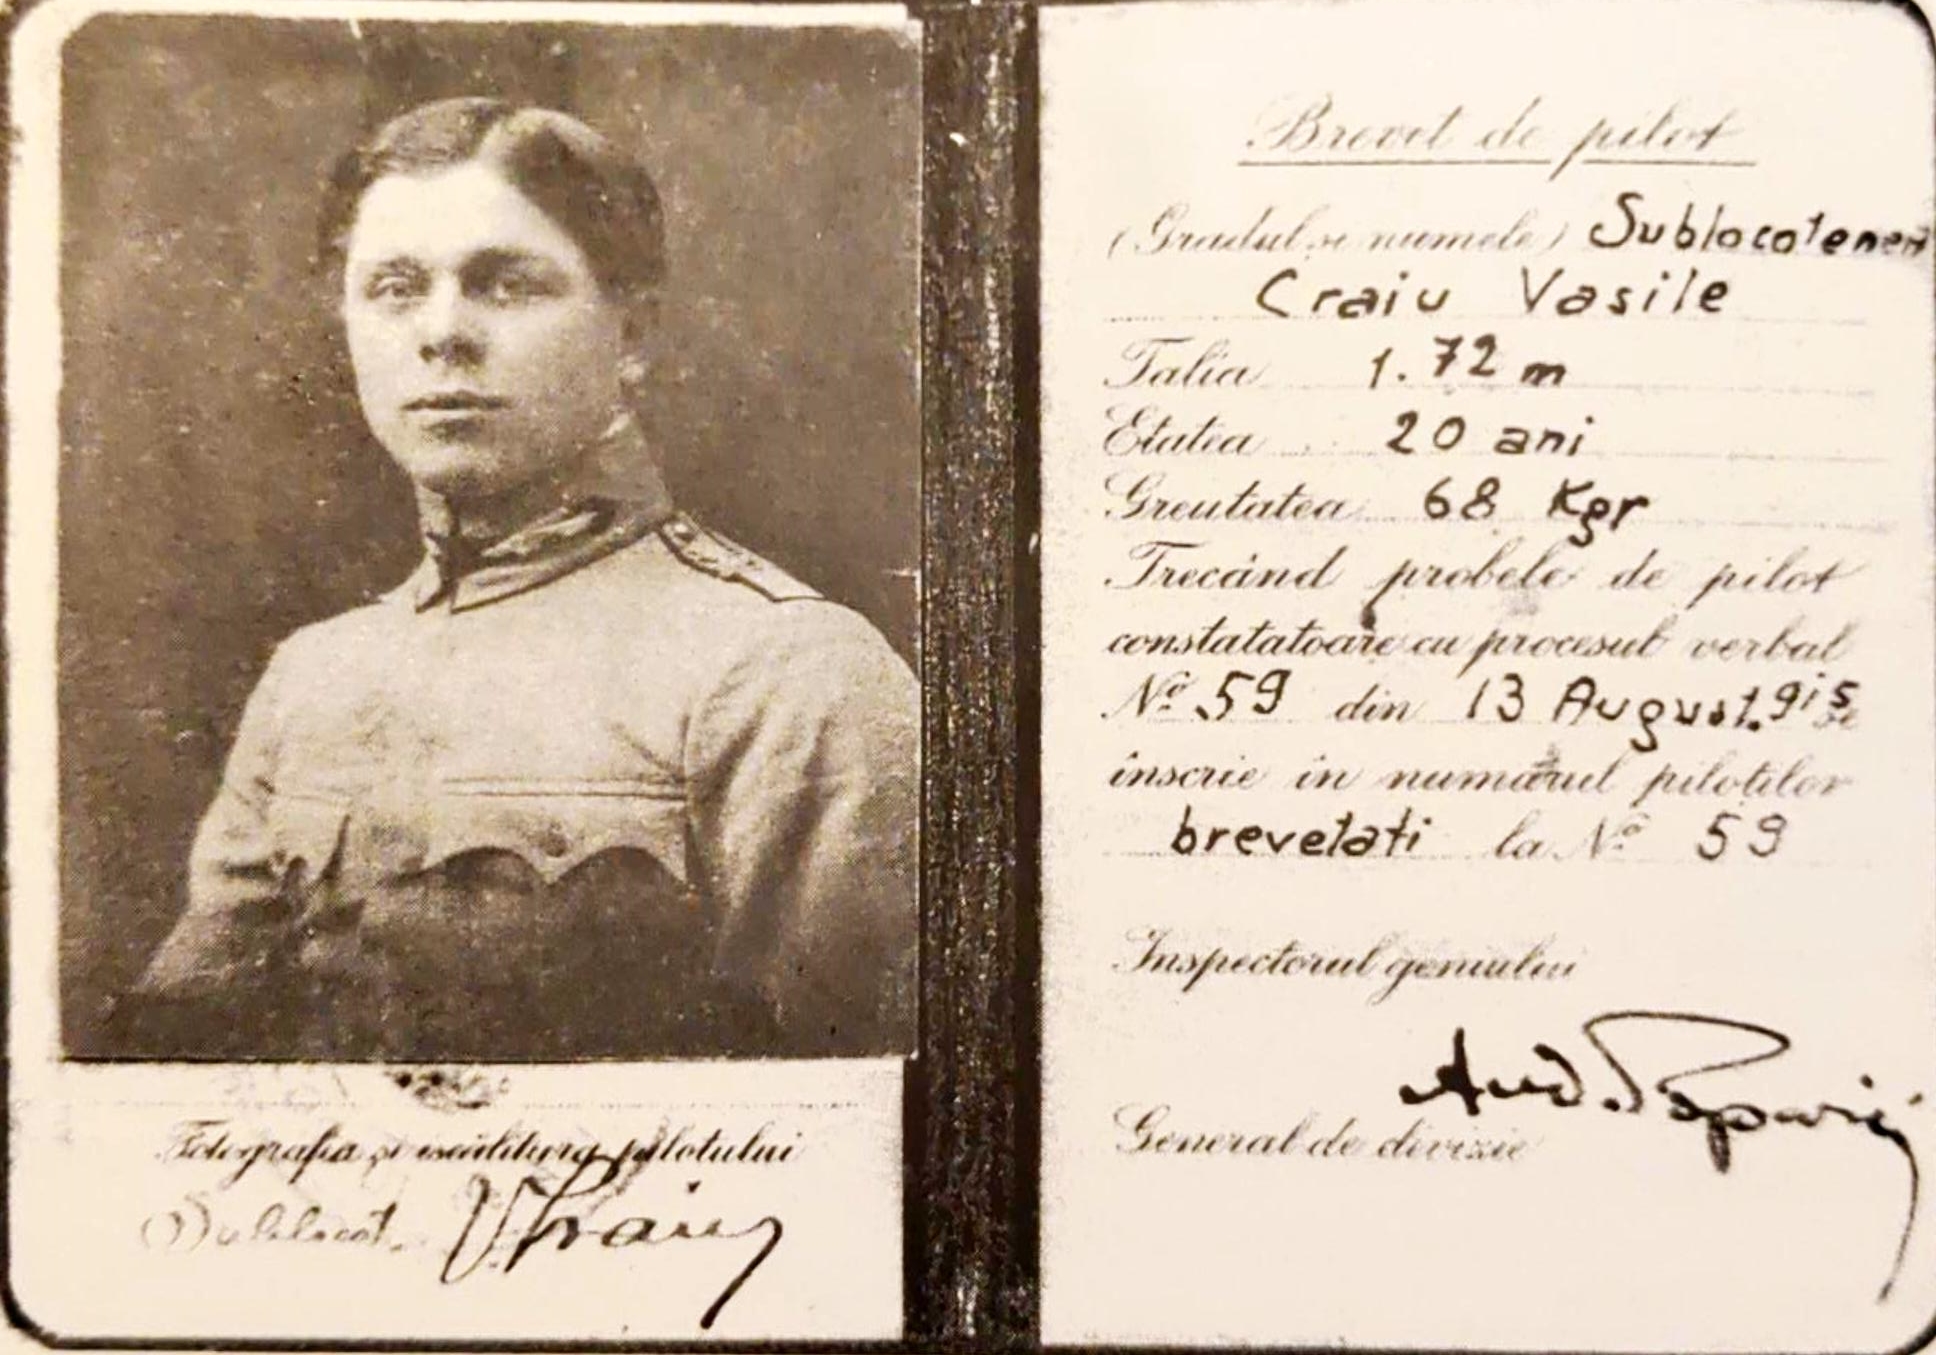 Fotografia și iscălitura pilotului
Sublocot. V. Craiu
Brevet de pilot
(Gradul și numele) Sublocotenent
Craiu Vasile
Talia 1.72 m
Etatea 20 ani
Greutatea 68 Kgr
Trecând probele de pilot
constatatoare cu procesul verbal
No. 59 din 13 August.915 se
înscrie in numărul piloților
brevetati la No. 59
Inspectorul geniului
General de divizie